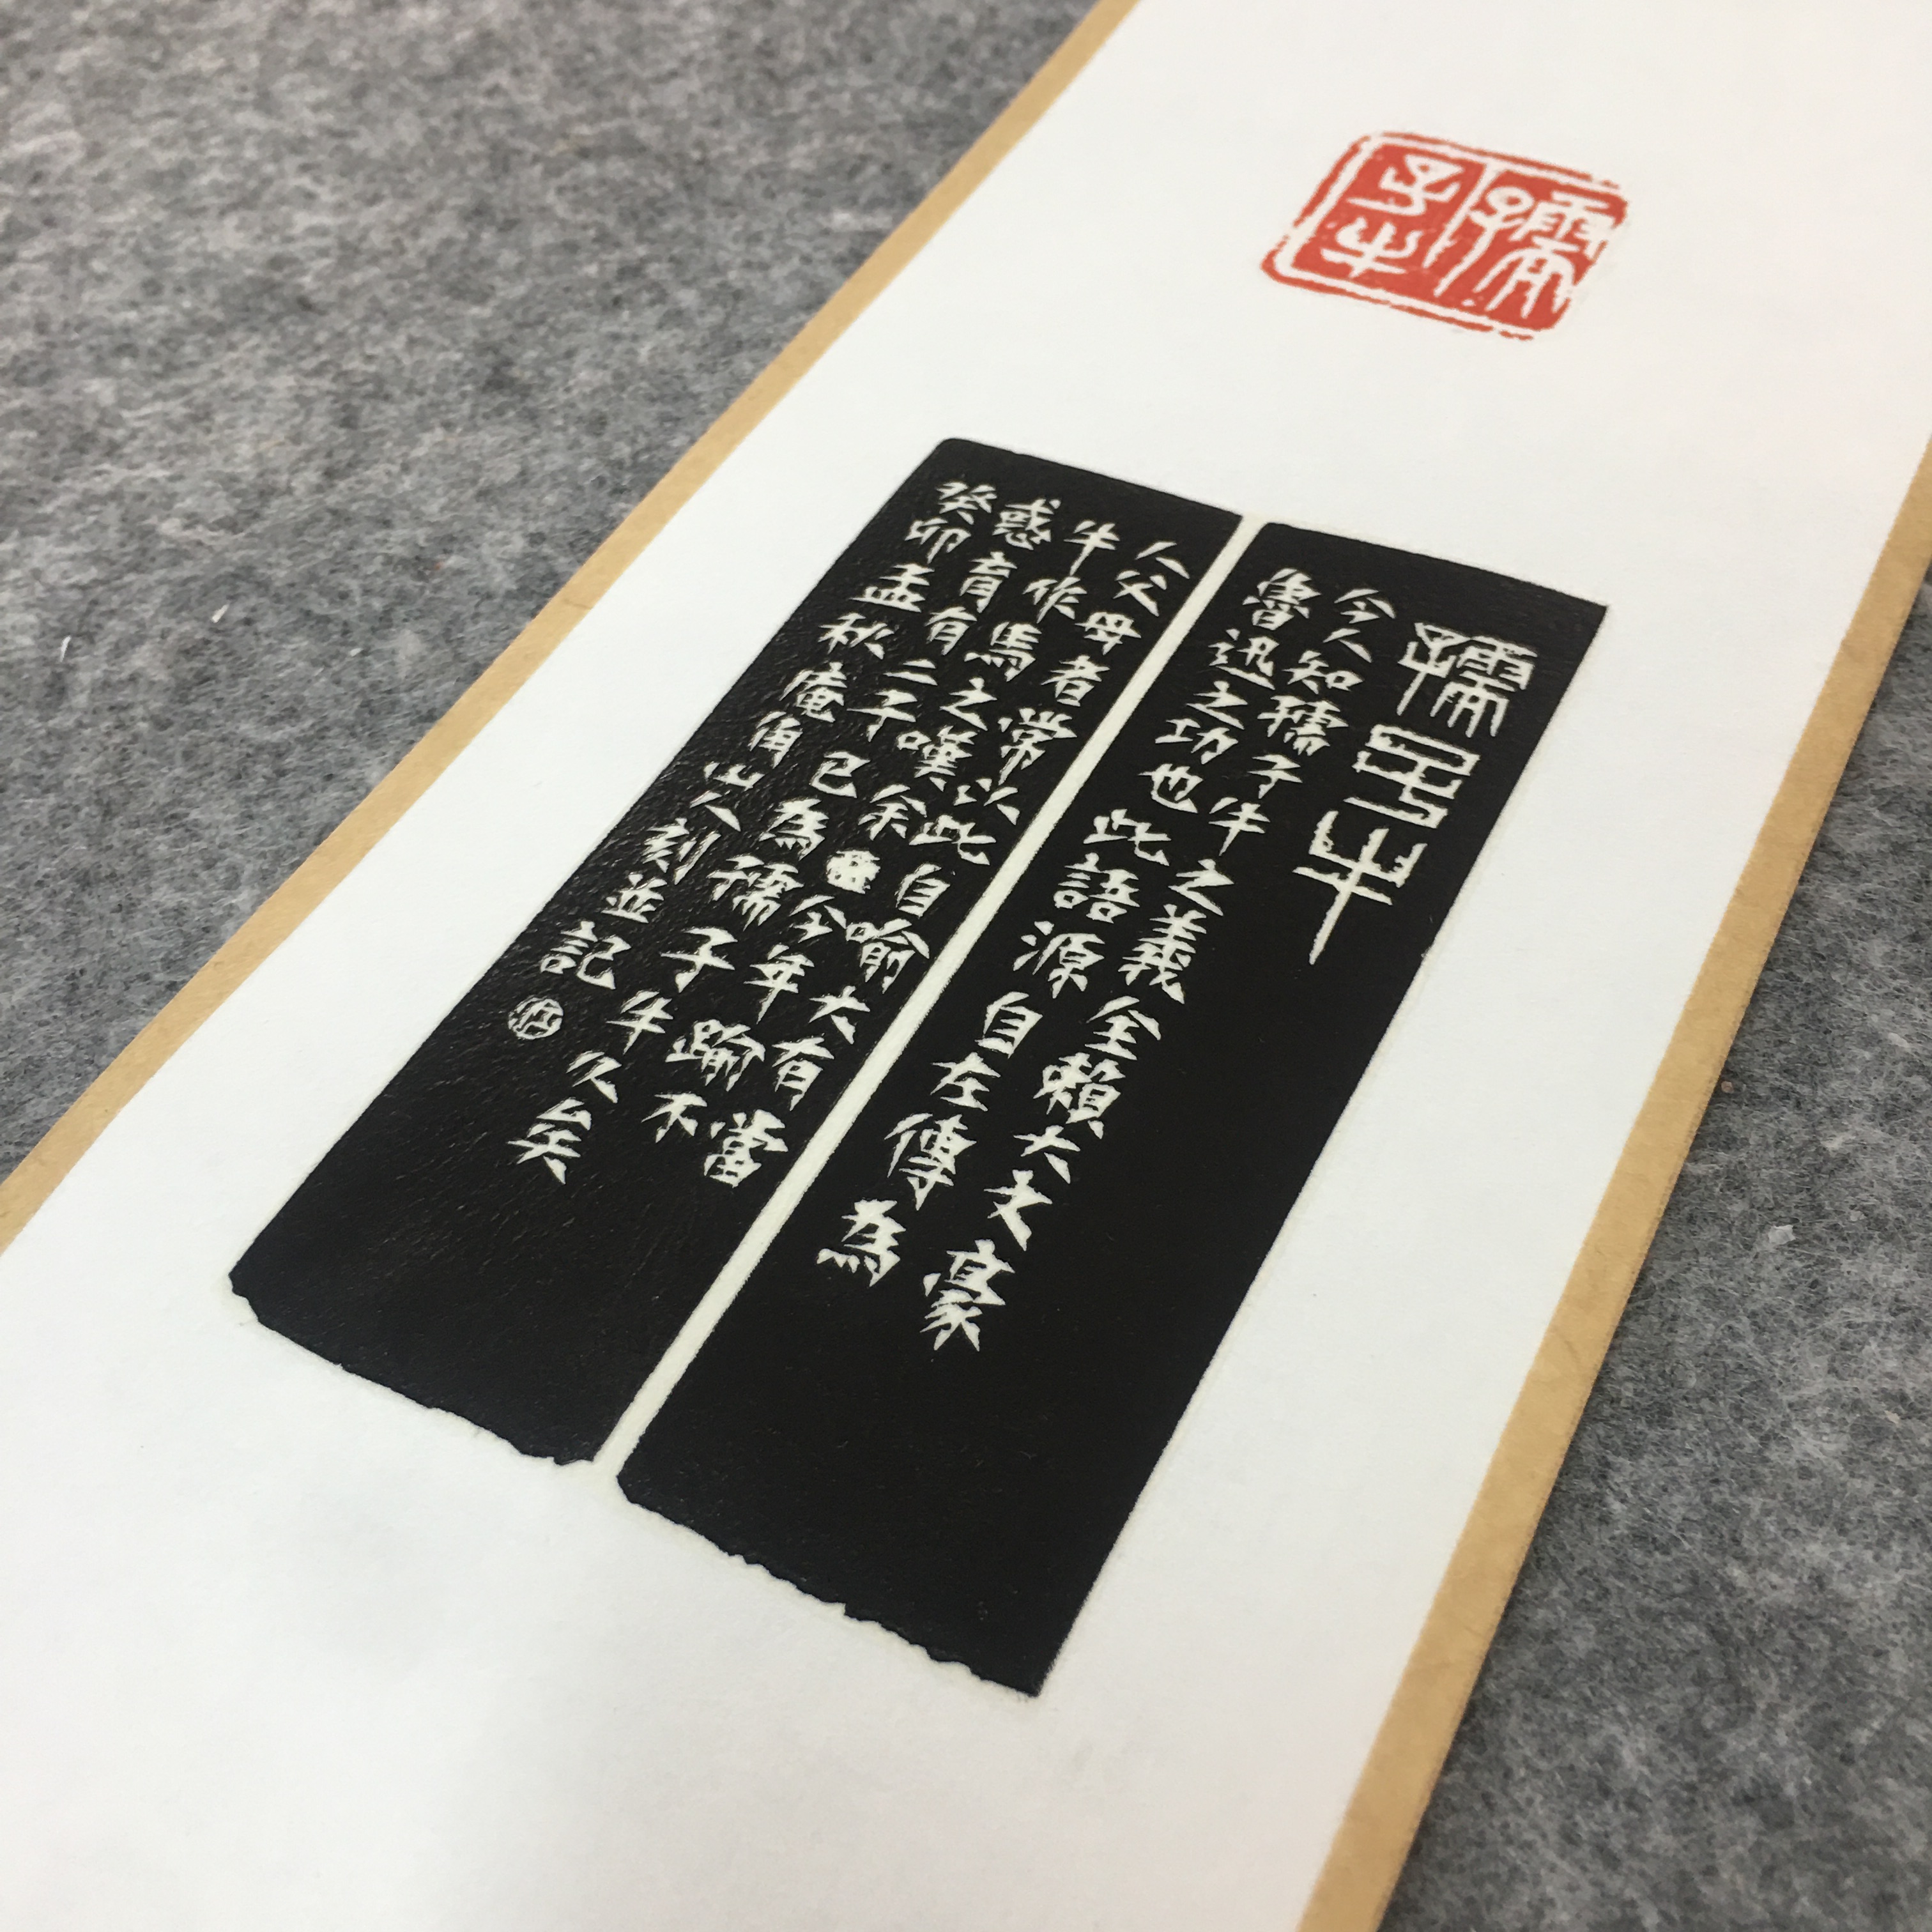 孺
子牛
孺子牛
今人知孺子牛之義全賴大文豪
魯迅之功也此語源自左傳為
人父母者常以此自喻大有當
牛作馬之嘆余今年踰不
惑育有二子已為孺子牛久矣
癸卯孟秋庵山人刻並記